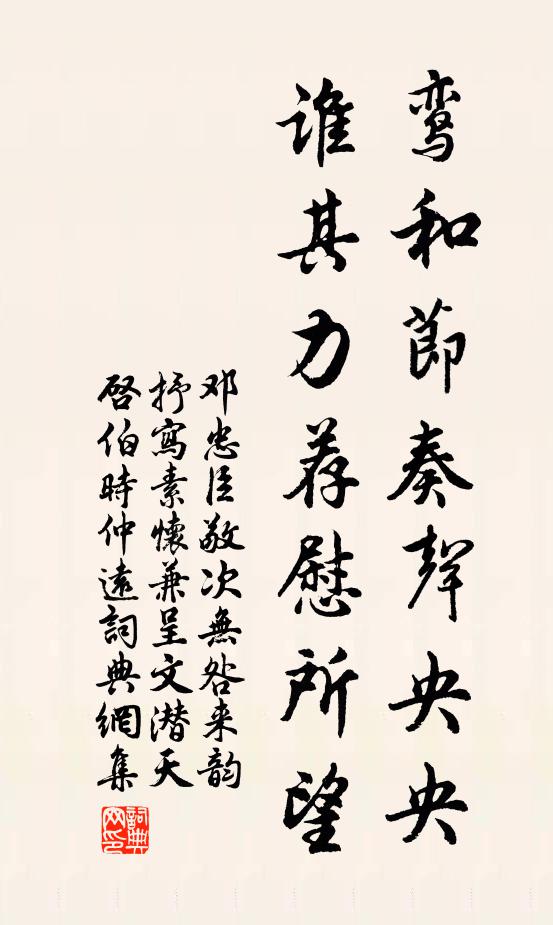 鸾和節奏聲央央
谁其力荐慰所望
邓忠臣敬次無咎来韵
抒寫素懷兼呈文潜天
啓伯時仲遠詞典網集
詞典网印